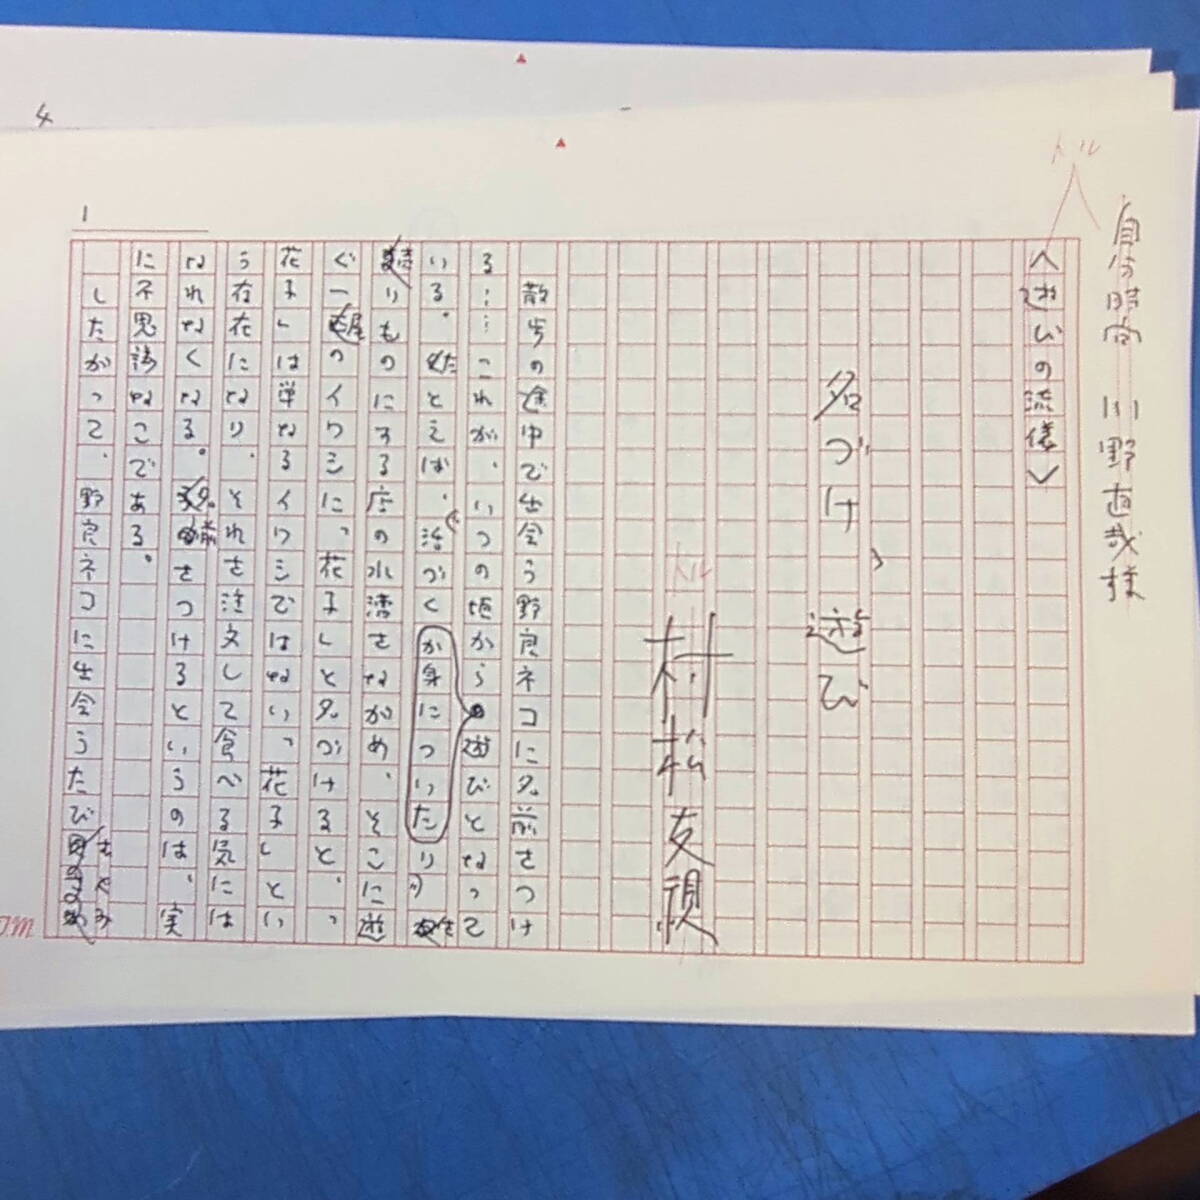 自分時間 川野直哉様
トル
〈遊びの流儀〉
名づけ遊び
トル
村松友視
散歩の途中で出会う野良ネコに名前をつけ
る……これが、いつの頃からの遊びとなって
いる。たとえば、活づくり
が身についた
りものにする店の水濱をながめ、そこに遊
ぐ一尾のイワシに、"花子"と名づけると、"
花子"は単なるイワシではない"花子"とい
う存在になり、それを注文して食べる気には
なれなくなる。名前をつけるというのは、実
に不思議なことである。
したがって、野良ネコに出会うたび
1
4